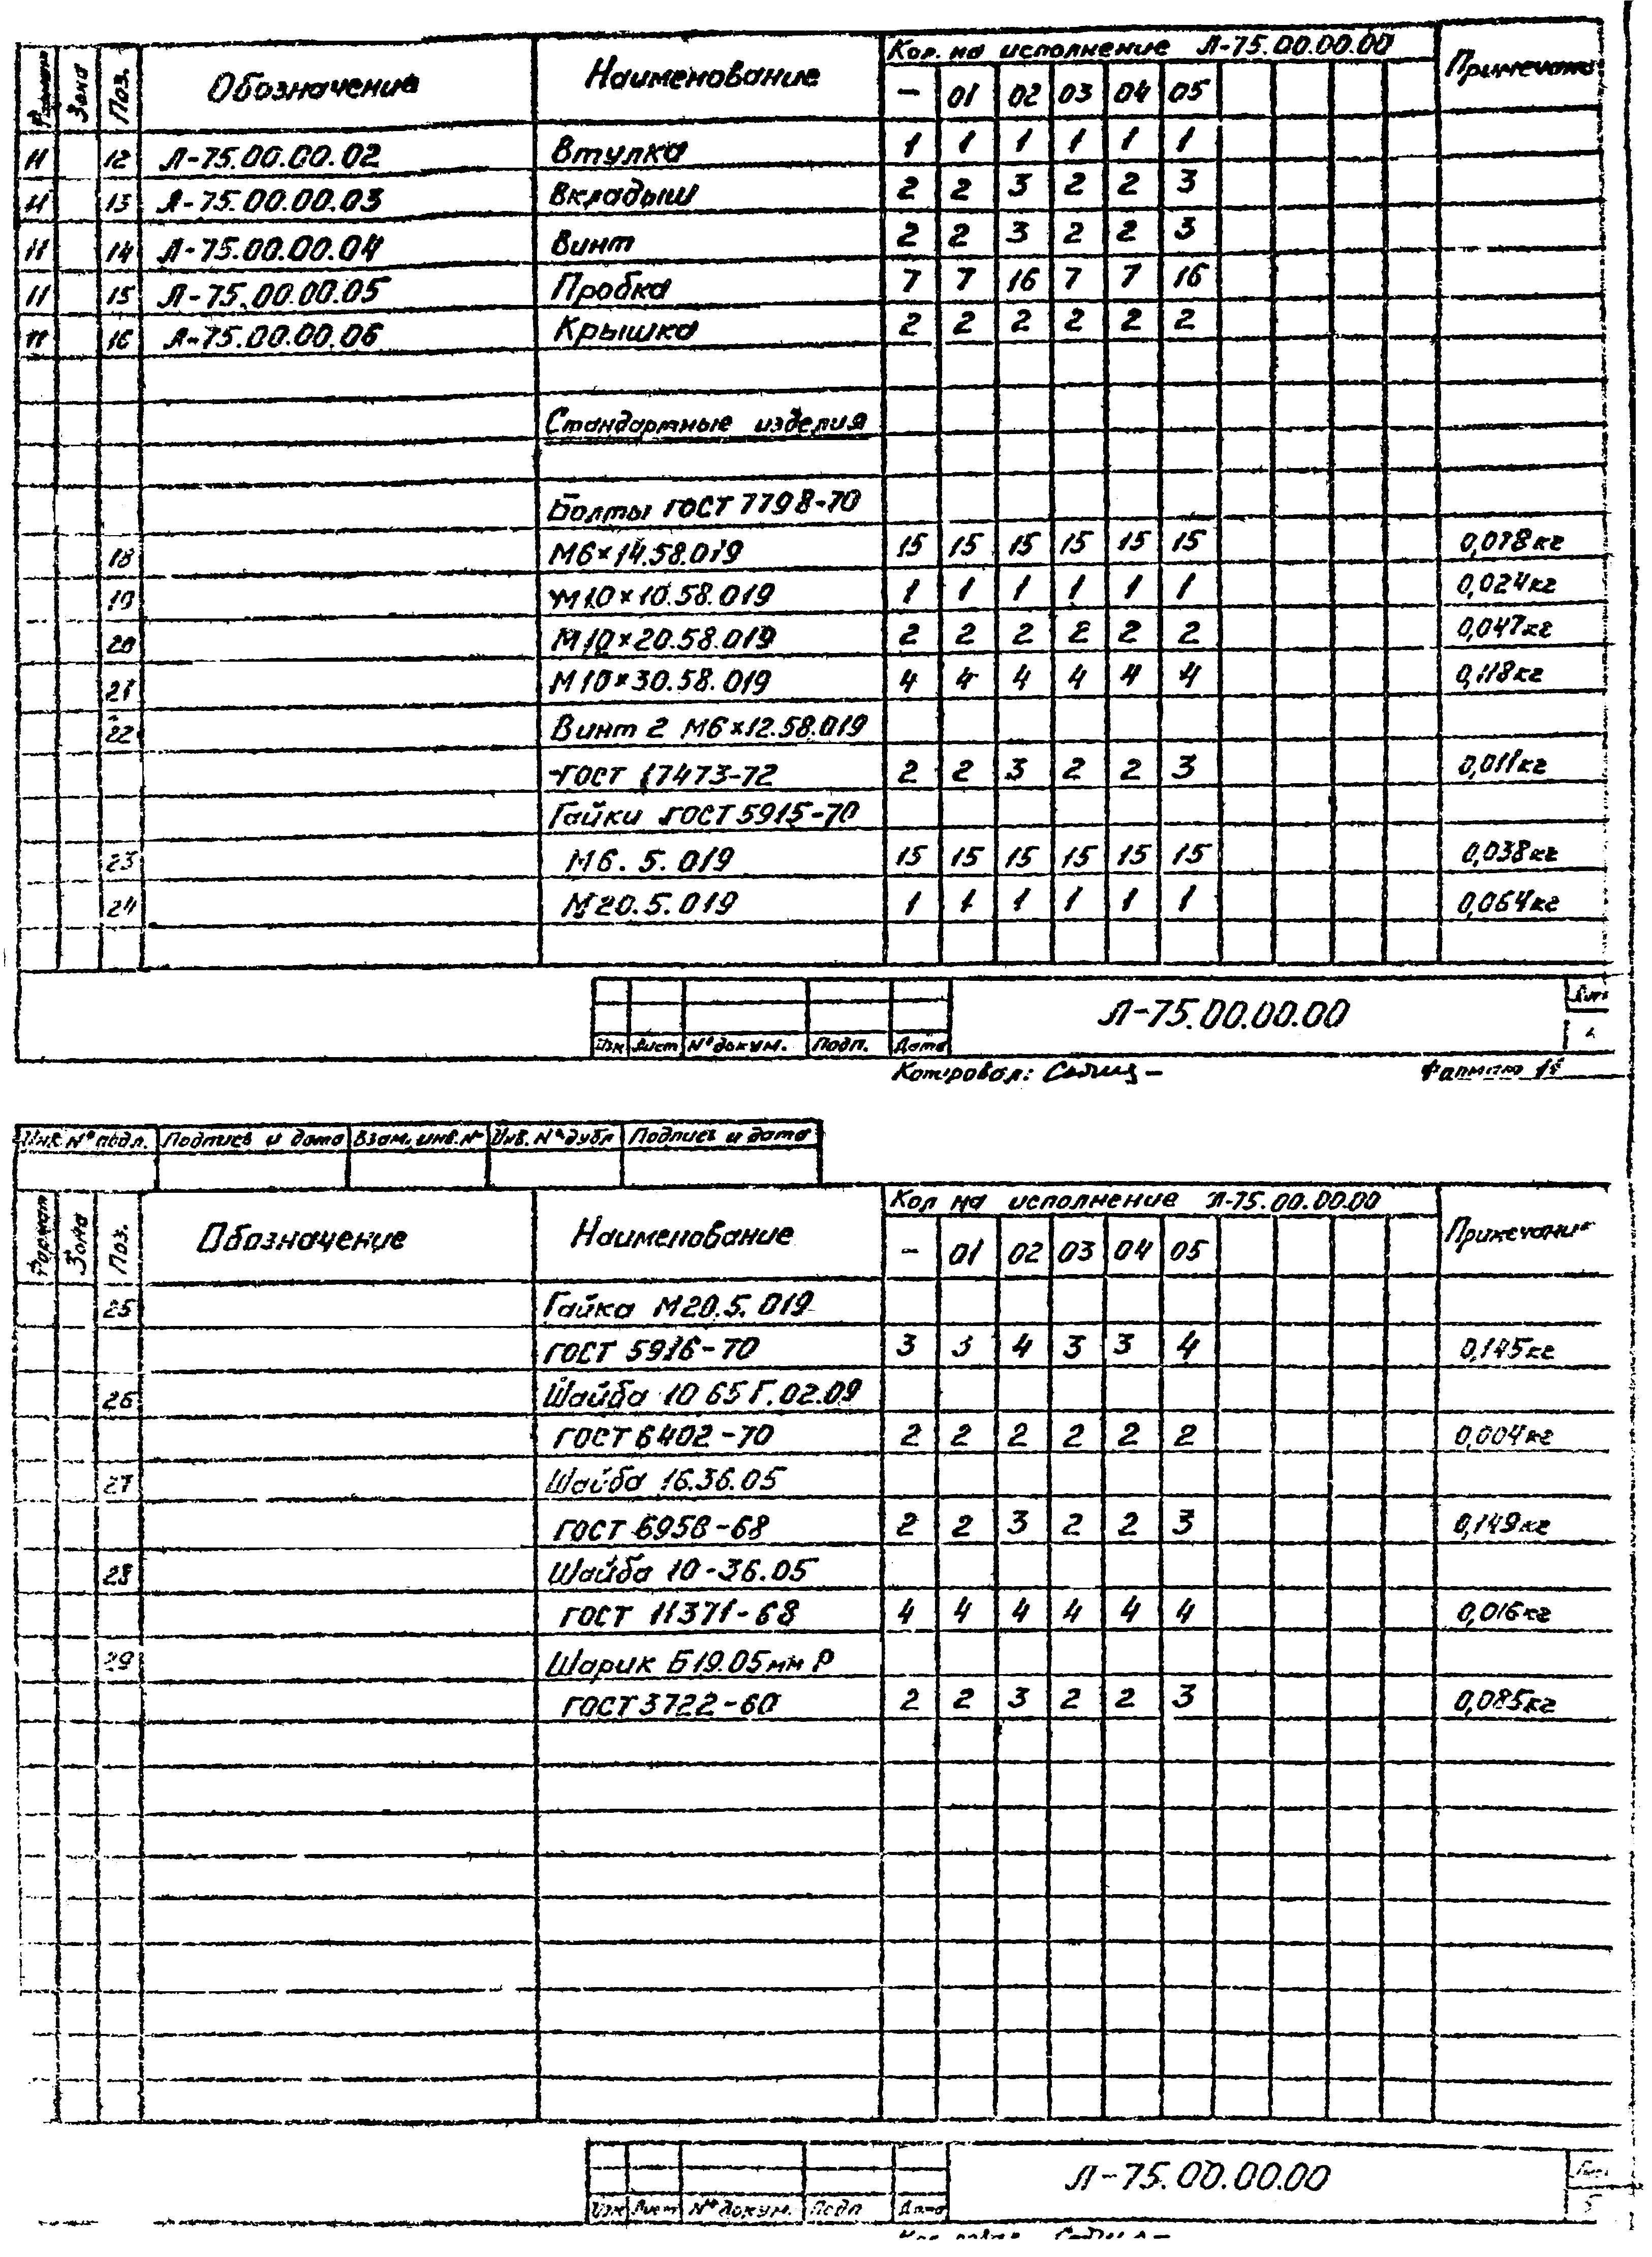 Формат Зона Поз. Обозначение Наименование Кол. на исполнение Л-75.00.00.00 Примечание
- 01 02 03 04 05
11 12 Л-75.00.00.02 Втулка 1 1 1 1 1 1
11 13 Л-75.00.00.03 Вкладыш 2 2 3 2 2 3
11 14 Л-75.00.00.04 Винт 2 2 3 2 2 3
11 15 Л-75.00.00.05 Пробка 7 7 16 7 7 16
11 16 Л-75.00.00.06 Крышка 2 2 2 2 2 2
Стандартные изделия
Болты ГОСТ 7798-70
18 М6×14.58.019 15 15 15 15 15 15 0,078кг
19 М10×10.58.019 1 1 1 1 1 1 0,024кг
20 М10×20.58.019 2 2 2 2 2 2 0,047кг
21 М10×30.58.019 4 4 4 4 4 4 0,118кг
22 Винт 2 М6×12.58.019
ГОСТ 17473-72 2 2 3 2 2 3 0,011кг
Гайки ГОСТ 5915-70
23 М6.5.019 15 15 15 15 15 15 0,038кг
24 М20.5.019 1 1 1 1 1 1 0,064кг
Л-75.00.00.00 Лист
Изм Лист № докум. Подп. Дата 4
Копировал: Формат 11
Инв. № подл. Подпись и дата Взам. инв. № Инв. № дубл Подпись и дата
Формат Зона Поз. Обозначение Наименование Кол на исполнение Л-75.00.00.00 Примечание
- 01 02 03 04 05
25 Гайка М20.5.019
ГОСТ 5916-70 3 3 4 3 3 4 0,145кг
26 Шайба 10 65Г.02.09
ГОСТ 6402-70 2 2 2 2 2 2 0,004кг
27 Шайба 16.36.05
ГОСТ 6958-68 2 2 3 2 2 3 0,149кг
28 Шайба 10-36.05
ГОСТ 11371-68 4 4 4 4 4 4 0,016кг
29 Шарик Б19.05мм Р
ГОСТ 3722-60 2 2 3 2 2 3 0,085кг
Л-75.00.00.00 Лист
Изм Лист № докум. Подп Дата 5